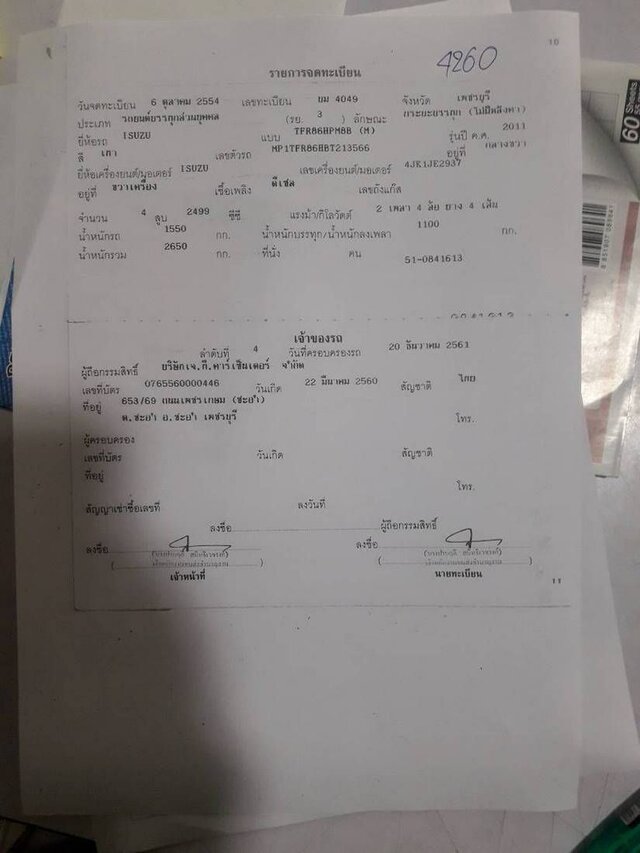 10
4260
รายการจดทะเบียน
วันจดทะเบียน 6 ตุลาคม 2554 เลขทะเบียน ยม 4049 จังหวัด เพชรบุรี
ประเภท รถยนต์บรรทุกส่วนบุคคล (รย. 3 ) ลักษณะ กระบะบรรทุก (ไม่มีหลังคา)
ยี่ห้อรถ ISUZU แบบ TFR86HPM8B (M) รุ่นปี ค.ศ. 2011
สี เทา เลขตัวรถ MP1TFR86HBT213566 อยู่ที่ กลางขวา
ยี่ห้อเครื่องยนต์/มอเตอร์ ISUZU เลขเครื่องยนต์/มอเตอร์ 4JK1JE2937
อยู่ที่ ขวาเครื่อง เชื้อเพลิง ดีเซล เลขถังแก๊ส
จำนวน 4 สูบ 2499 ซีซี แรงม้า/กิโลวัตต์ 2 เพลา 4 ล้อ ยาง 4 เส้น
น้ำหนักรถ 1550 กก. น้ำหนักบรรทุก/น้ำหนักลงเพลา 1100 กก.
น้ำหนักรวม 2650 กก. ที่นั่ง คน 51-0841613
เจ้าของรถ
ลำดับที่ 4 วันที่ครอบครองรถ 20 ธันวาคม 2561
ผู้ถือกรรมสิทธิ์ บริษัทเจ.ที.คาร์เซ็นเตอร์ จำกัด
เลขที่บัตร 0765560000446 วันเกิด 22 มีนาคม 2560 สัญชาติ ไทย
ที่อยู่ 653/69 ถนนเพชรเกษม (ชะอำ)
ต.ชะอำ อ.ชะอำ เพชรบุรี โทร.
ผู้ครอบครอง
เลขที่บัตร วันเกิด สัญชาติ
ที่อยู่
โทร.
สัญญาเช่าซื้อเลขที่ ลงวันที่
ลงชื่อ ผู้ถือกรรมสิทธิ์
ลงชื่อ ลงชื่อ
เจ้าหน้าที่ นายทะเบียน
11
60 Sheets
8 851907 085841